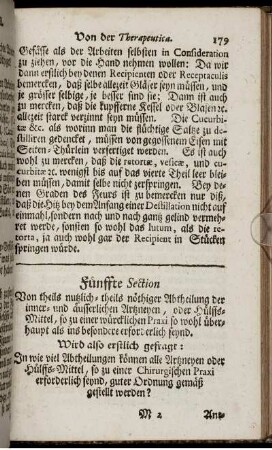 Von der Therapeutica. 179
Gefässe als der Arbeiten selbsten in Consideration
zu ziehen, vor die Hand nehmen wollen: Da wir
dann erstlich bey denen Recipienten oder Receptaculis
bemercken, daß selbe allezeit Gläser seyn müssen, und
je grösser selbige, je besser sind sie; Dann ist auch
zu mercken, daß die kupfferne Kessel oder Blasen &c.
allezeit starck verzinnt seyn müssen. Die Cucurbi-
tæ &c. als worinn man die flüchtige Saltze zu de-
stilliren gedencket, müssen von gegossenem Eisen mit
Seiten-Thürlein verfertiget werden. Es ist auch
wohl zu mercken, daß die retortæ, vesicæ, und cu-
curbitæ &c. wenigst biß auf das vierte Theil leer blei-
ben müssen, damit selbe nicht zerspringen. Bey de-
nen Graden des Feurs ist zu bemercken nur diß,
daß die Hitz bey dem Anfang einer Destillation nicht auf
einmahl, sondern nach und nach gantz gelind vermeh-
ret werde, sonsten so wohl das lutum, als die re-
torta, ja auch wohl gar der Recipient in Stücken
springen würde.
Fünffte Section
Von theils nutzlich-theils nöthiger Abtheilung der
inner- und äusserlichen Artzneyen, oder Hülffs-
Mittel, so zu einer würcklichen Praxi so wohl über-
haupt als ins besondere erforderlich seynd.
Wird also erstlich gefragt:
In wie viel Abtheilungen können alle Artzneyen oder
Hülffs-Mittel, so zu einer Chirurgischen Praxi
erforderlich seynd, guter Ordnung gemäß
gestellt werden?
M 2 Ant-